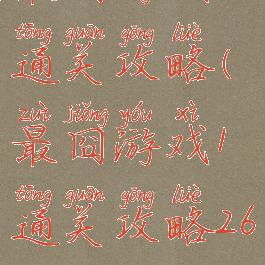 tōng guān gōng lüè
通关攻略(
zuì jiǒng yóu xì
最囧游戏1
tōng guān gōng lüè
通关攻略26